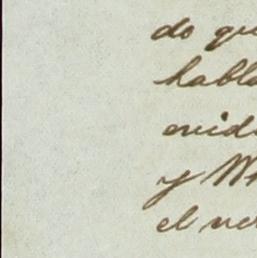 do qu
habla
evid
y W
el ve